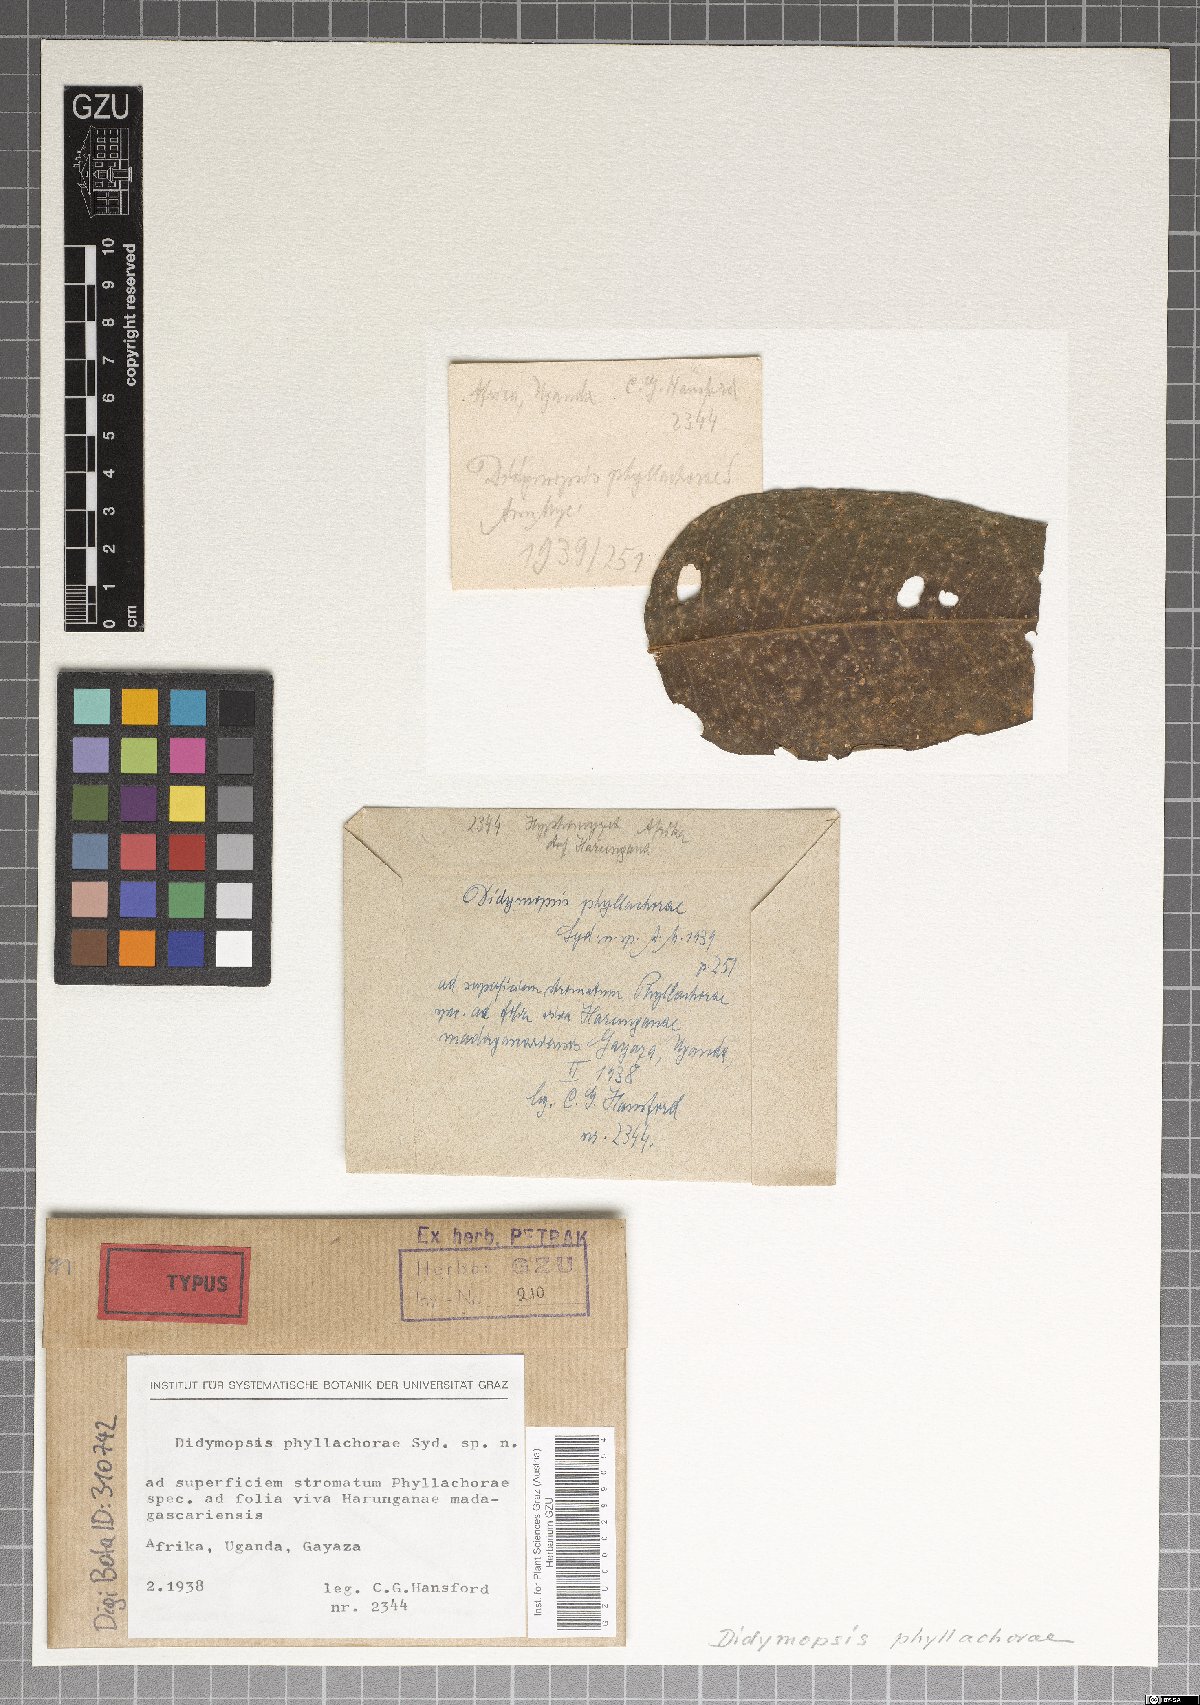 GZU
0 1 2 3 4 5 6 7 8 9 10
cm
copyright reserved
Africa, Uganda C. G. Hansford
2344
Didymopsis phyllachorae S
1939/251
2344 Hyphomycet Afrika
auf Harungana
Didymopsis phyllachorae
Syd. n. sp. 1939
p 251
ad superficiem stromatum Phyllachorae
spec. ad folia viva Harunganae
Gayaza, Uganda,
II 1938
lg. C. G. Hansford
nr. 2344.
TYPUS
Ex herb. PETRAK
Herbar GZU
Inv.-Nr. 210
INSTITUT FÜR SYSTEMATISCHE BOTANIK DER UNIVERSITÄT GRAZ
Didymopsis phyllachorae Syd. sp. n.
ad superficiem stromatum Phyllachorae
spec. ad folia viva Harunganae mada-
gascariensis
Afrika, Uganda, Gayaza
2.1938 leg. C.G.Hansford
nr. 2344
DigiBota ID: 310742
Inst. for Plant Sciences Graz (Austria)
Herbarium GZU
Didymopsis phyllachorae
BY-SA